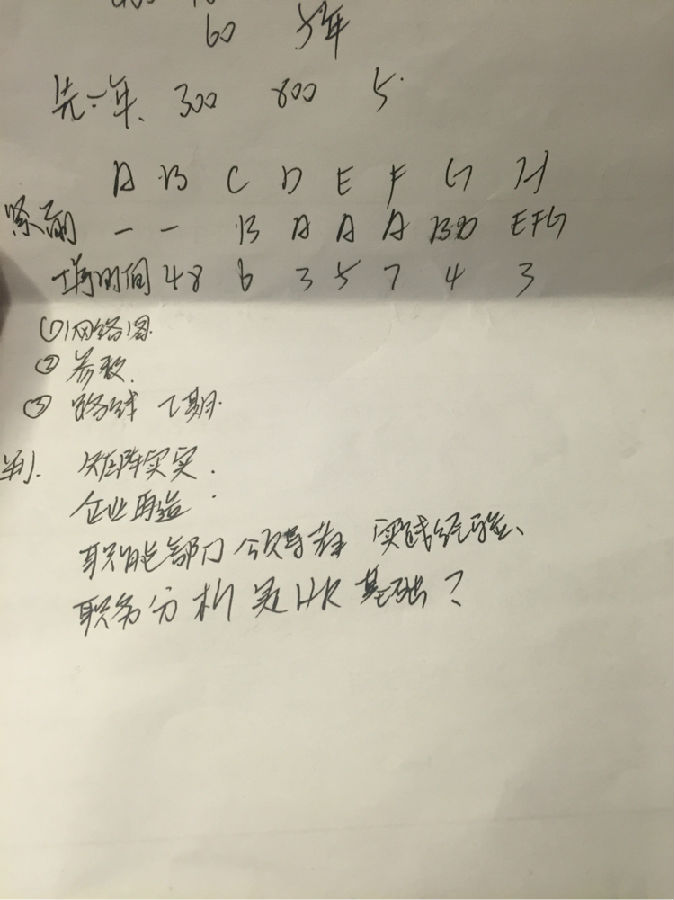 60 5年
先一年、 300 800 5.
A B C D E F G H
紧前 — — B A A A BD EFG
工序时间 4 8 6 3 5 7 4 3
①网络图
② 参数.
③ 路线 工期.
判. 矩阵
企业再造
职能部门 领导 实践经验、
职务分析是HR基础?